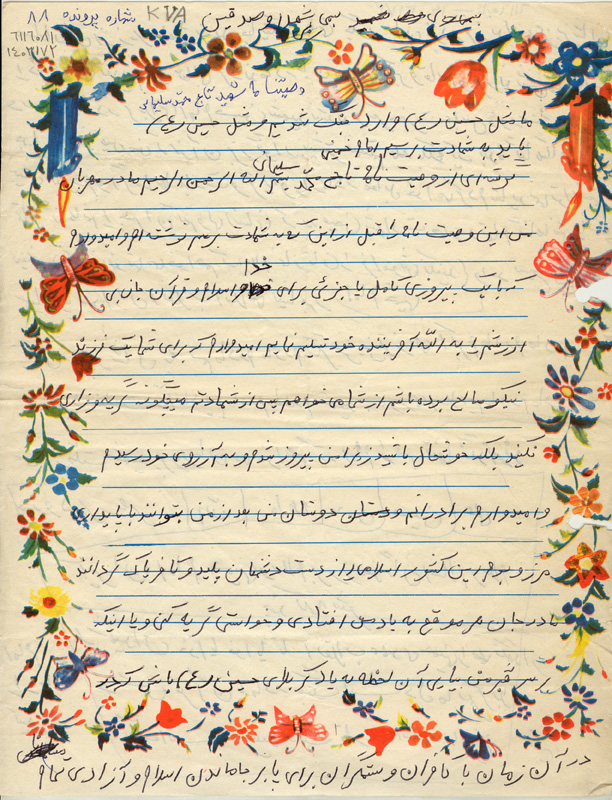 شماره پرونده ۸۸
KVA
۶۱۱۶۰۸۱
۱۴۰۳۱۷۲
بسمه ی شهدا و صدقین
وصیتنامه شهید تاج محمد سلیمانی
ما مثل حسین (ع) وارد جنگ شدیم و مثل حسین (ع)
باید به شهادت برسیم امام خمینی
نوشته ای از وصیت نامه تاج محمد سلیمانی بسم الله الرحمن الرحیم مادر مهربان
من این وصیت نامه را قبل از این که به شهادت برسم نوشته ام و امیدوارم
که با یک پیروزی کامل یا جزئی برای خدا و اسلام و قرآن جان بی
ارزشم را به الله آفریننده خود تسلیم نمایم امیدوارم که برای شما یک فرزند
نیکو صالح بوده باشم از شما می خواهم پس از شهادتم هیچگونه گریه و زاری
نکنید بلکه خوشحال باشید زیرا من پیروز شدم و به آرزوی خود رسیدم
و امیدوارم برادرانم و دوستان من بعد از من بتوانند با پایداری
مرز و بوم این کشور اسلامی را از دست دشمنان پلید و کافر پاک گردانند
مادر جان هر موقع به یاد من افتادی و خواستی گریه کنی و یا اینکه
بر سر قبر من بیایی آن لحظه به یاد کربلای حسین (ع) باش که در
در آن زمان با کافران و ستمگران برای پا بر جا ماندن اسلام و آزادی تمام